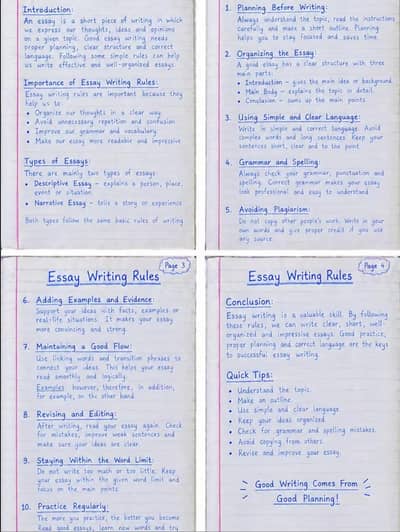 Introduction:
An essay is a short piece of writing in which
we express our thoughts, ideas and opinions
on a given topic. Good essay writing needs
proper planning, clear structure and correct
language. Following some simple rules can help
us write effective and well-organized essays.
Importance of Essay Writing Rules:
Essay writing rules are important because they
help us to
• Organize our thoughts in a clear way.
• Avoid unnecessary repetition and confusion
• Improve our grammar and vocabulary.
• Make our essay more readable and impressive
Types of Essays:
There are mainly two types of essays:
• Descriptive Essay – explains a person, place,
event or situation.
• Narrative Essay – tells a story or experience
Both types follow the same basic rules of writing
1. Planning Before Writing:
Always understand the topic, read the instructions
carefully and make a short outline. Planning
helps you to stay focused and saves time.
2. Organizing the Essay:
A good essay has a clear structure with three
main parts:
• Introduction – gives the main idea or background
• Main Body – explains the topic in detail.
• Conclusion – sums up the main points
3. Using Simple and Clear Language:
Write in simple and correct language. Avoid
complex words and long sentences. Keep your
sentences short, clear and to the point
4. Grammar and Spelling:
Always check your grammar, punctuation and
spelling. Correct grammar makes your essay
look professional and easy to understand
5. Avoiding Plagiarism:
Do not copy other people's work. Write in your
own words and give proper credit if you use
any source.
Page 3
Essay Writing Rules
6. Adding Examples and Evidence:
Support your ideas with facts, examples or
real-life situations. It makes your essay
more convincing and strong.
7. Maintaining a Good Flow:
Use linking words and transition phrases to
connect your ideas. This helps your essay
read smoothly and logically.
Examples: however, therefore, in addition,
for example, on the other hand.
8. Revising and Editing:
After writing, read your essay again. Check
for mistakes, improve weak sentences and
make sure your ideas are clear.
9. Staying Within the Word Limit:
Do not write too much or too little. Keep
your essay within the given word limit and
focus on the main points
10. Practice Regularly:
The more you practice, the better you become
Read good essays, learn new words and try
Page 4
Essay Writing Rules
Conclusion:
Essay writing is a valuable skill. By following
these rules, we can write clear, short, well-
organized and impressive essays. Good practice,
proper planning and correct language are the keys
to successful essay writing.
Quick Tips:
• Understand the topic.
• Make an outline.
• Use simple and clear language
• Keep your ideas organized
• Check for grammar and spelling mistakes.
• Avoid copying from others.
• Revise and improve your essay.
Good Writing Comes From
Good Planning!